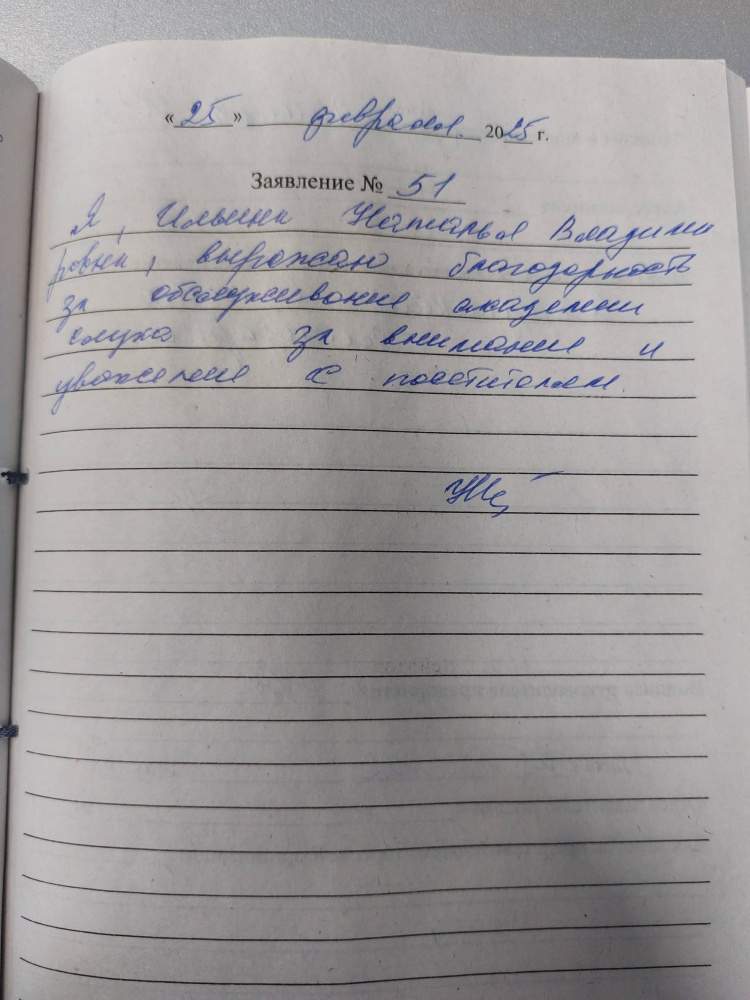 «25» февраля 2025 г.
Заявление № 51
Я, Ильина Наталья Владими
ровна, выражаю благодарность
за обслуживание академии
слуха за внимание и
уважение к посетителям.